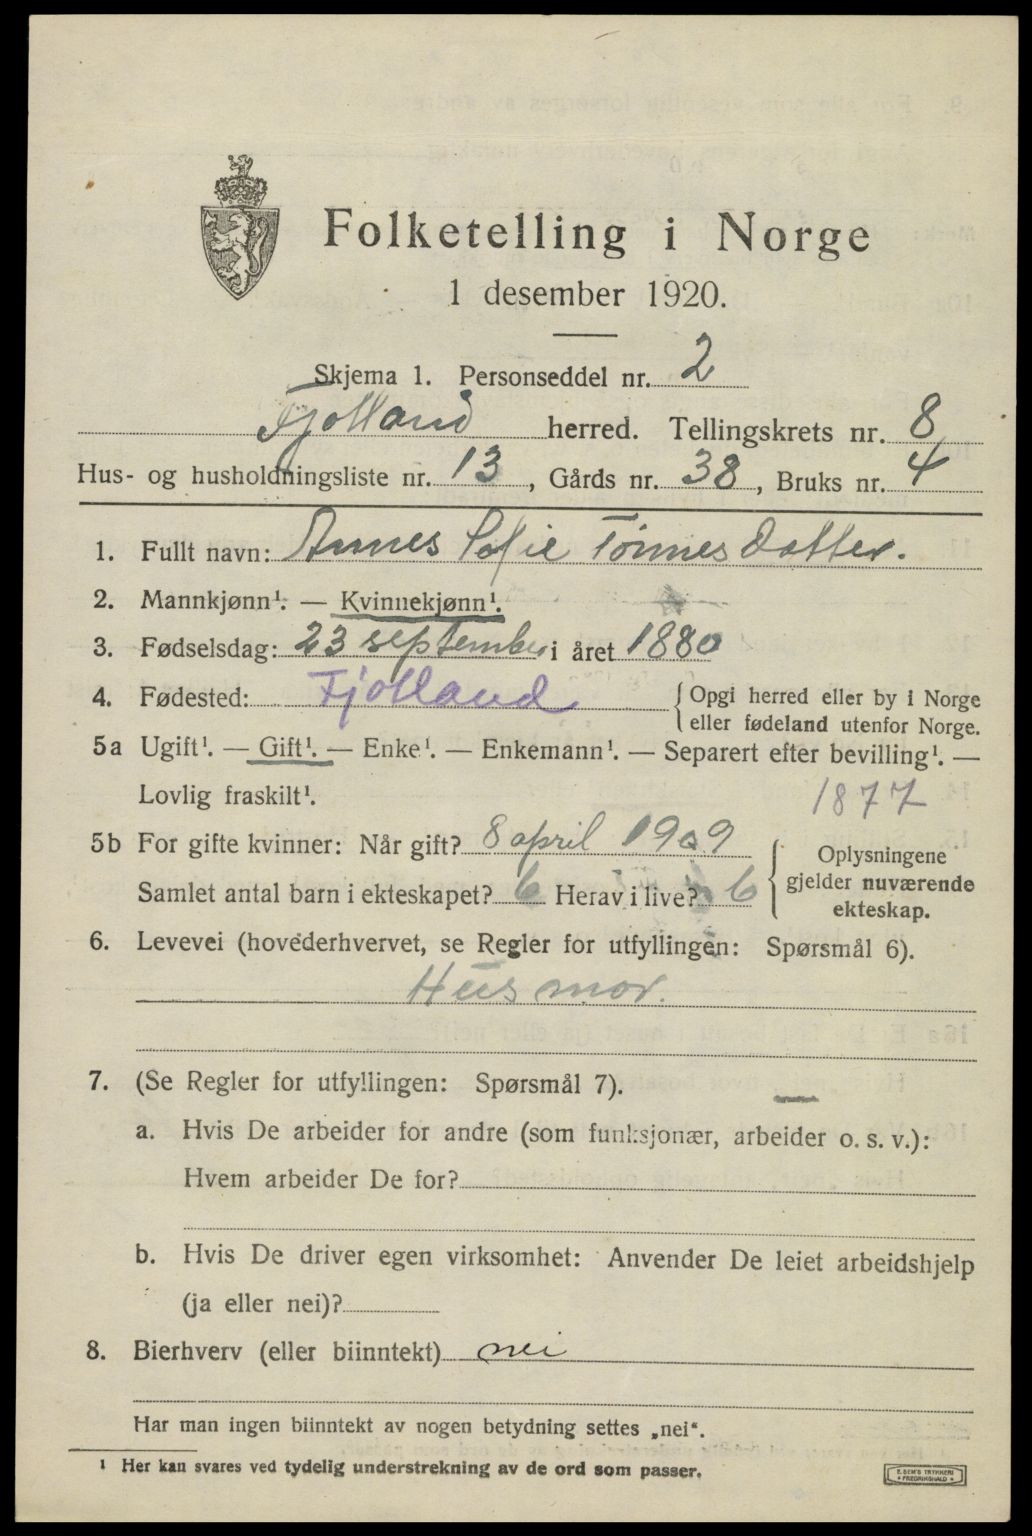 Folketelling i Norge
1 desember 1920.
Skjema 1. Personseddel nr. 2
Fjotland herred. Tellingskrets nr. 8
Hus- og husholdningsliste nr. 13, Gårds nr. 38, Bruks nr. 4
1. Fullt navn: Annes Sofie Tönnes Datter.
2. Mannkjønn¹. — Kvinnekjønn¹.
3. Fødselsdag: 23 september i året 1880
4. Fødested: Fjotland {Opgi herred eller by i Norge
eller fødeland utenfor Norge.
5a Ugift¹. — Gift¹. — Enke¹. — Enkemann¹. — Separert efter bevilling¹. —
Lovlig fraskilt¹. 1877
5b For gifte kvinner: Når gift? 8 april 1909
Samlet antal barn i ekteskapet? 6 Herav i live? 6
Oplysningene
gjelder nuværende
ekteskap.
6. Levevei (hovederhvervet, se Regler for utfyllingen: Spørsmål 6).
Husmor.
7. (Se Regler for utfyllingen: Spørsmål 7).
a. Hvis De arbeider for andre (som funksjonær, arbeider o. s. v.):
Hvem arbeider De for?
b. Hvis De driver egen virksomhet: Anvender De leiet arbeidshjelp
(ja eller nei)?
8. Bierhverv (eller biinntekt) nei
Har man ingen biinntekt av nogen betydning settes „nei“.
¹ Her kan svares ved tydelig understrekning av de ord som passer.
E. SEM'S TRYKKERI
• FREDRIKSHALD •